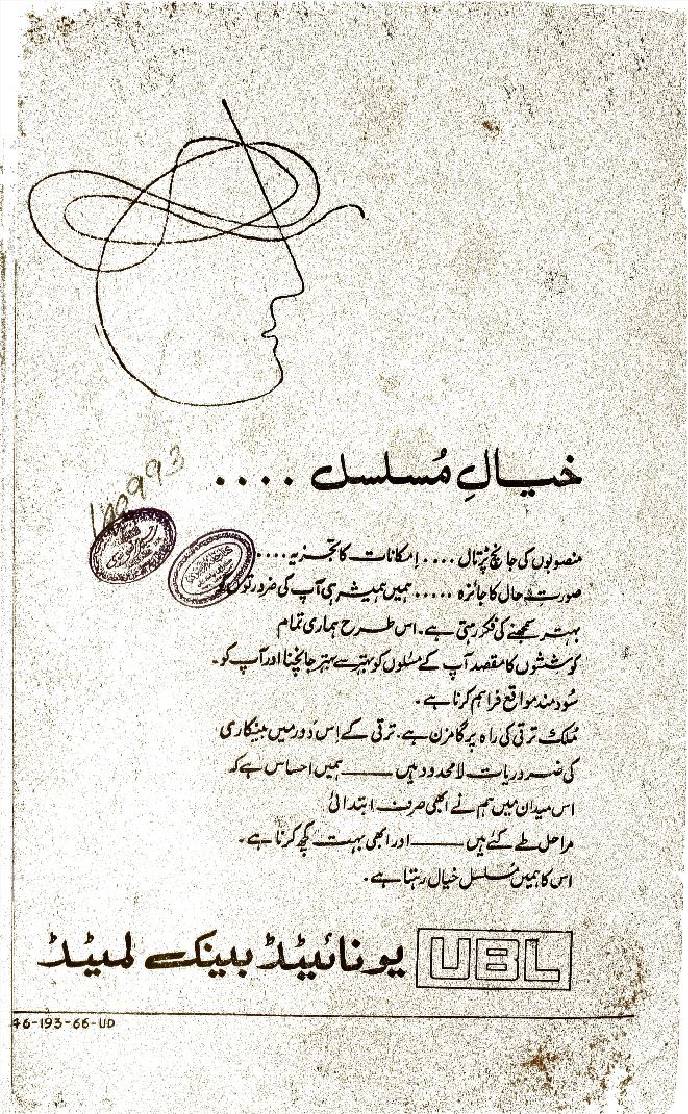 خیالِ مُسلسل ....
100993
منصوبوں کی جانچ پڑتال .... اِمکانات کا تجزیہ ....
صورتِ حال کا جائزہ ..... ہمیں ہمیشہ ہی آپ کی ضرورتوں کو
بہتر سمجھنے کی فکر رہتی ہے۔ اس طرح ہماری تمام
کوششوں کا مقصد آپ کے مسئلوں کو بہتر سے بہتر جانچنا اور آپ کو۔
سُودمند مواقع فراہم کرنا ہے۔
مُلک ترقی کی راہ پر گامزن ہے۔ ترقی کے اِس دَور میں بینکاری
کی ضروریات لامحدود ہیں ——— ہمیں احساس ہے کہ
اس میدان میں ہم نے ابھی صرف ابتدائی
مراحل طے کئے ہیں ——— اور ابھی بہت کچھ کرنا ہے۔
اس کا ہمیں مُسلسل خیال رہتا ہے۔
UBL یونائیٹڈ بینک لمیٹڈ
46-193-66-UD